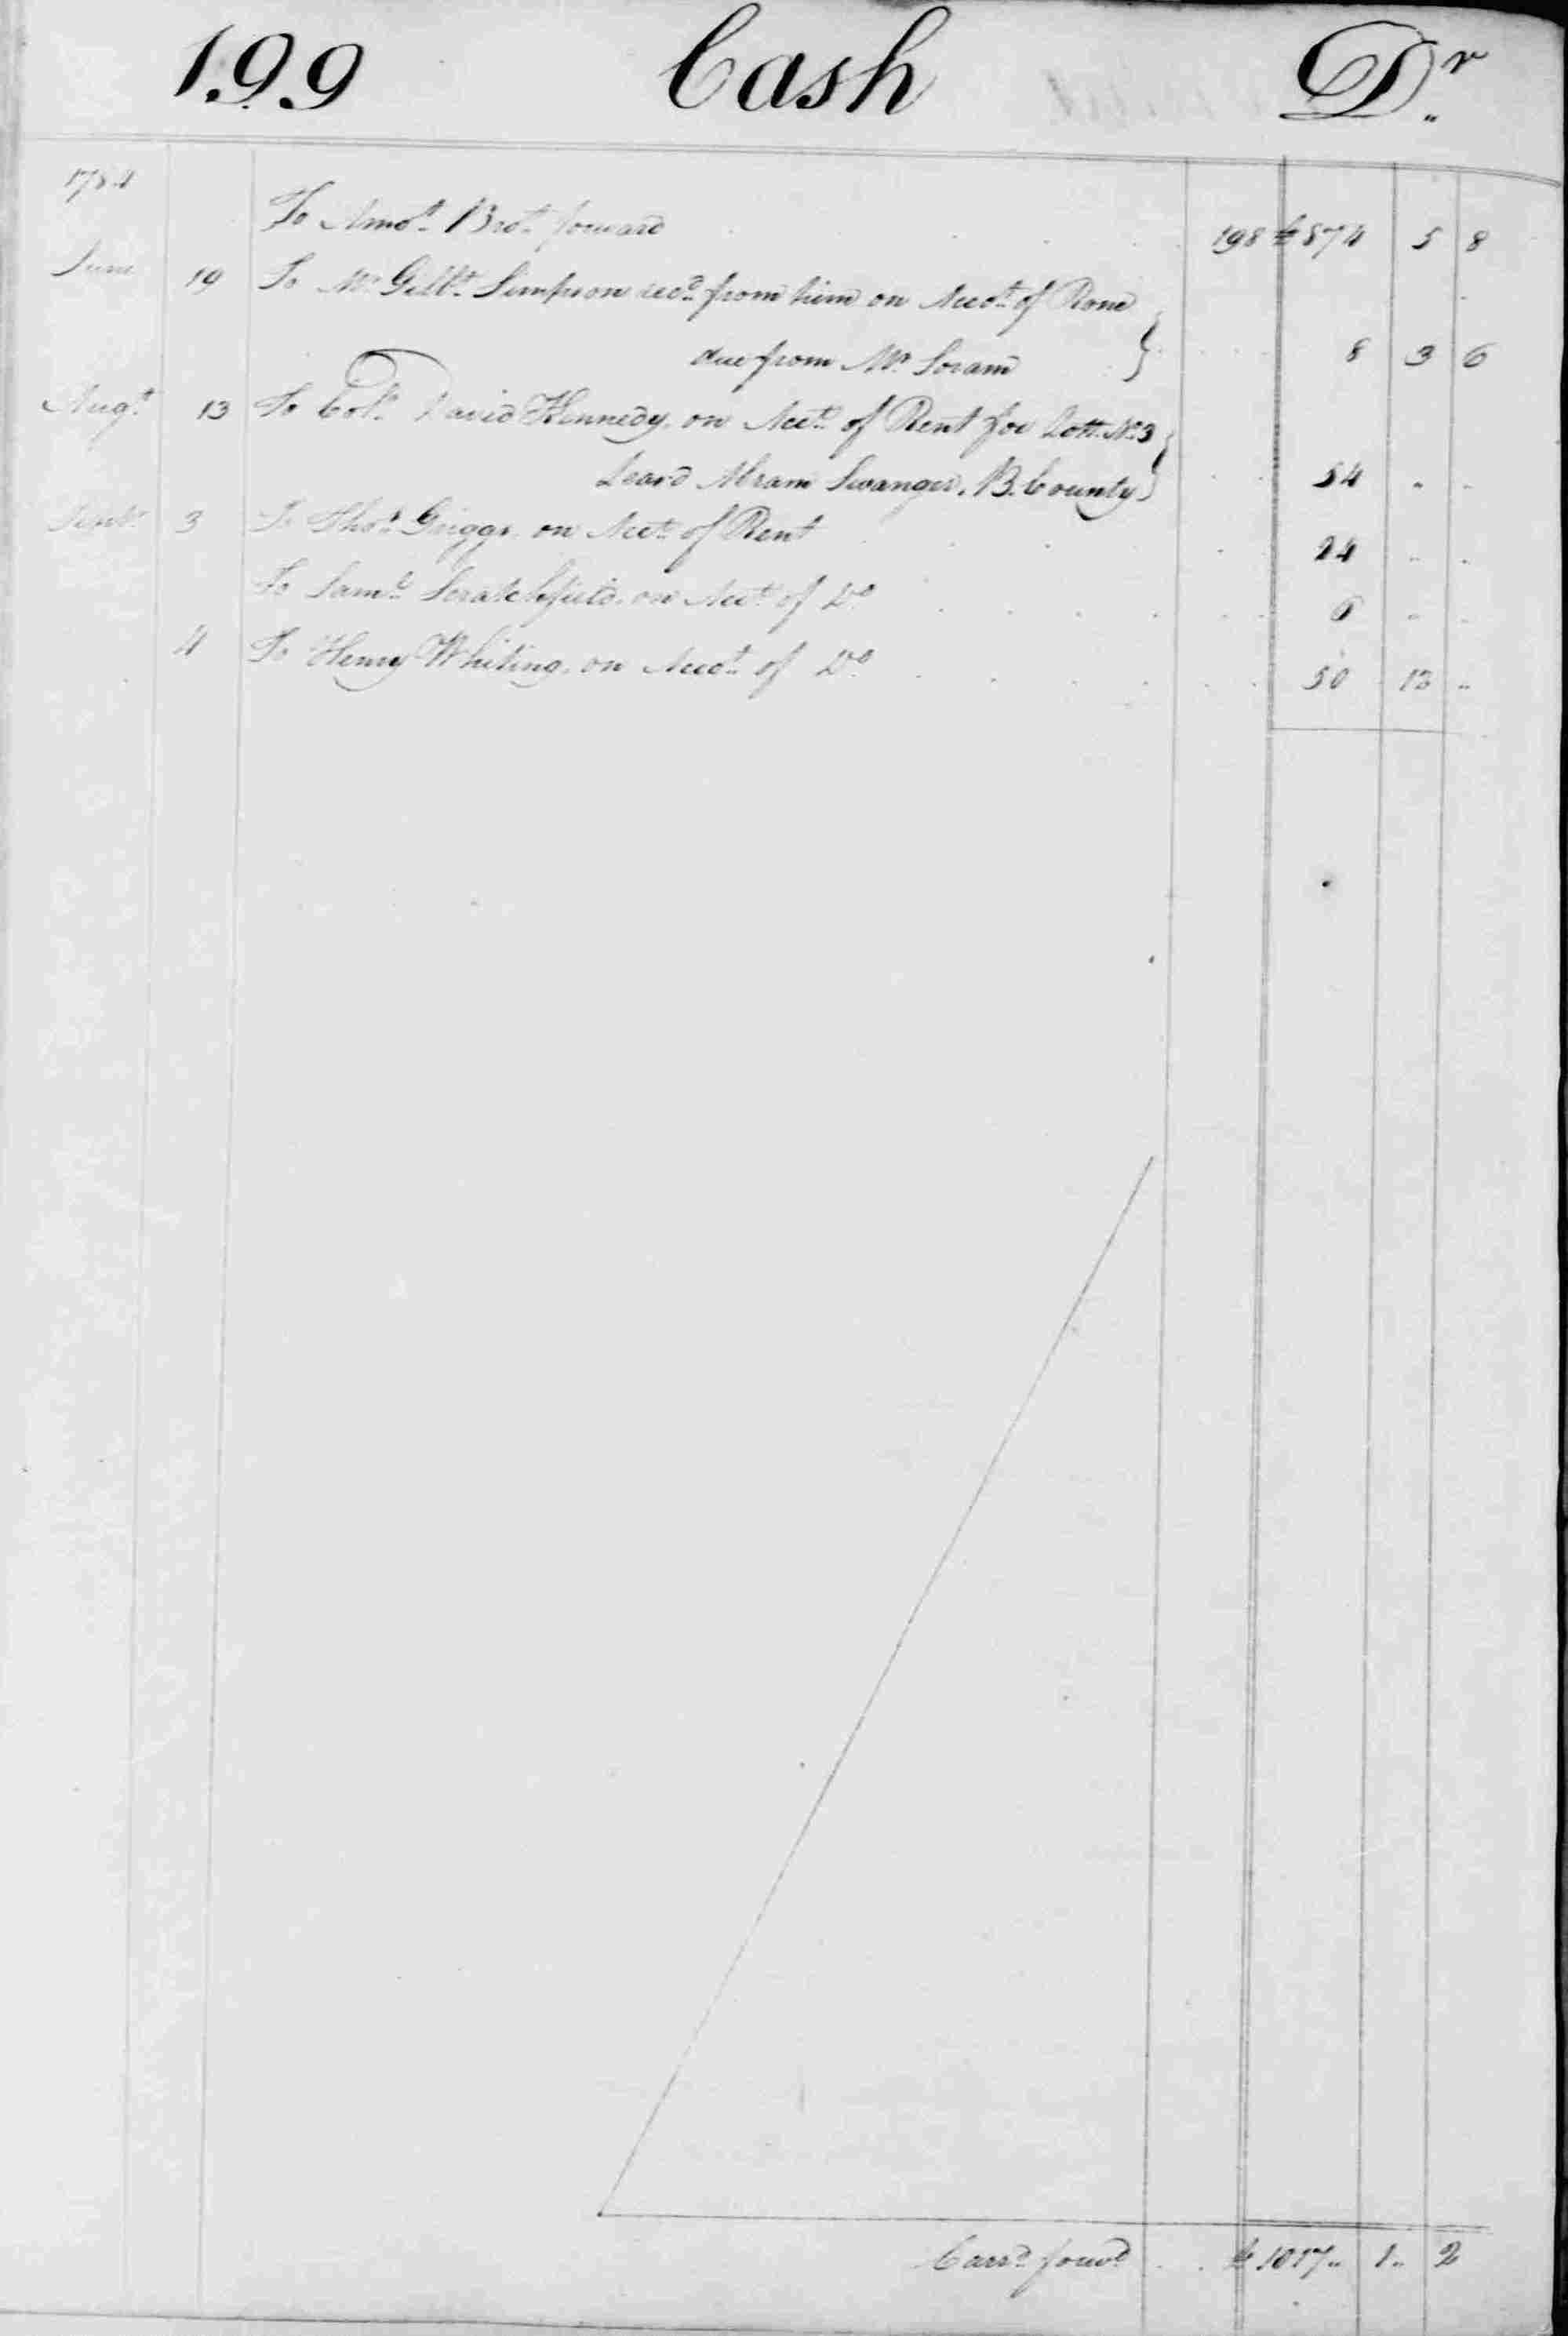 199 Cash Dr
1784
To Amot. Brot. forward 198 £ 874 5 8
June 19 To Mr Gilbt. Simpson recd. from him on Accot. of Rone
due from Mr 8 3 6
Augt. 13 To Colo. David Kennedy, on Acct. of Rent for Lott No. 3
Leasd Abram Swanger, B. County 54 " "
Septr 3 To Thos. Griggs on Acct. of Rent 24 " "
To Saml. Scratchfield, on Acct. of Do. 6 " "
4 To Henry Whiting, on Accot. of Do. 50 12 "
Carrd. forwd £ 1017 " 1 " 2